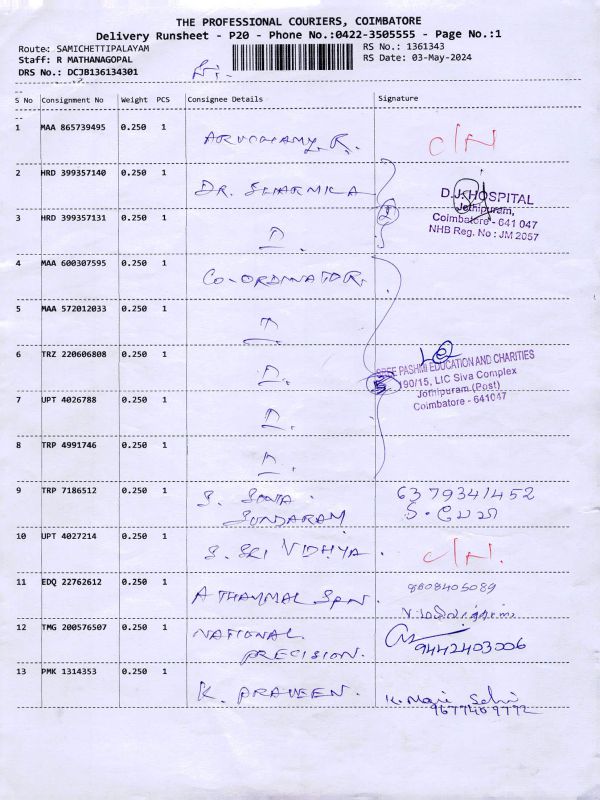 THE PROFESSIONAL COURIERS, COIMBATORE
Delivery Runsheet - P20 - Phone No.:0422-3505555 - Page No.:1
Route: SAMICHETTIPALAYAM
RS No.: 1361343
Staff: R MATHANAGOPAL
RS Date: 03-May-2024
DRS No.: DCJB136134301
S No Consignment No Weight PCS Consignee Details Signature
1 MAA 865739495 0.250 1
C/N
2 HRD 399357140 0.250 1 DR. SHARMILA
D.J. HOSPITAL
Jothipuram,
Coimbatore - 641 047
NHB Reg. No : JM 2057
3 HRD 399357131 0.250 1
4 MAA 600307595 0.250 1 CO-ORDINATOR.
5 MAA 572012033 0.250 1
6 TRZ 220606808 0.250 1
SREE PASHMI EDUCATION AND CHARITIES
190/15, LIC Siva Complex
Jothipuram (Post)
Coimbatore - 641047
5
7 UPT 4026788 0.250 1
8 TRP 4991746 0.250 1
9 TRP 7186512 0.250 1 S. SONIA
SUNDARAM
6379341452
10 UPT 4027214 0.250 1 S. SRI VIDHYA.
C/N.
11 EDQ 22762612 0.250 1
9808405089
12 TMG 200576507 0.250 1 NATIONAL
PRECISION.
9442403006
13 PMK 1314353 0.250 1 K. PRAVEEN.
K. Mani Selvi
9677409772